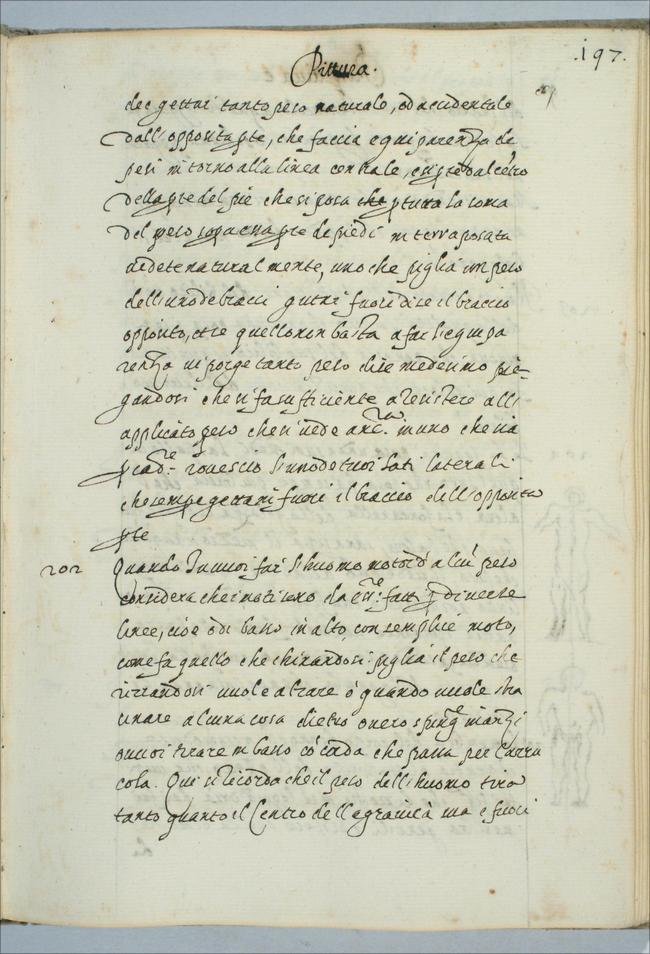 Pittura.
.197.
dee gettar tanto peso naturale, od accidentale
dall' opposita pte, che faccia equiparenza de
pesi intorno alla linea centrale, dal cẽtro
della pte del piè che si posa la soma
del peso sopra essa pte de piedi in terra posata
vedete naturalmente, uno che piglia un peso
dell'uno de bracci gittar fuori di se il braccio
opposito, et se quello non basta a far l'equipa
renza vi porge tanto peso di se medesimo pie-
gandosi che si fa sufficiente a resistere all'
applicato peso che si vede anc.ra in uno che sia
p cad.re rovescio l'uno de suoi lati laterali
che sempe getta in fuori il braccio dell'opposita
pte
202 Quando Tu vuoi far l'huomo motor d'alcũ peso
considera che i moti sono da ess.re fatti p diverse
linee, cioè ò di basso in alto, con semplice moto,
come fa quello che chinandosi piglia il peso che
rizzandosi vuole alzare ò quando vuole stra
sinare alcuna cosa dietro overo spinge inanzi
o vuoi tirare in basso cõ corda che passa per Carru
cola. Qui si ricorda che il peso dell'huomo tira
tanto quanto il Centro della gravità sua e fuori
di